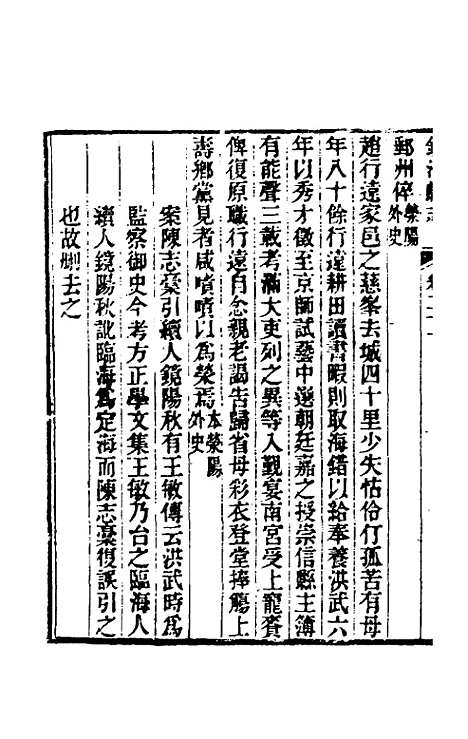 鎮海縣志 卷二十一
鄞州倅滎陽外史
趙行遠家邑之慈峯去城四十里少失怙伶仃孤苦有母
年八十餘行遠耕田讀書暇則取海錯以給奉養洪武六
年以秀才徵至京師試藝中選朝廷嘉之授崇信縣主簿
有能聲三載考滿大吏列之異等入覲宴南宮受上寵賚
俾復原職行遠自念親老謁告歸省母彩衣登堂捧觴上
壽鄉黨見者咸嘖嘖以爲榮焉本滎陽外史
案陳志稾引續人鏡陽秋有王敏傳云洪武時爲
監察御史今考方正學文集王敏乃台之臨海人
續人鏡陽秋訛臨海爲定海而陳志稾復誤引之
也故刪去之